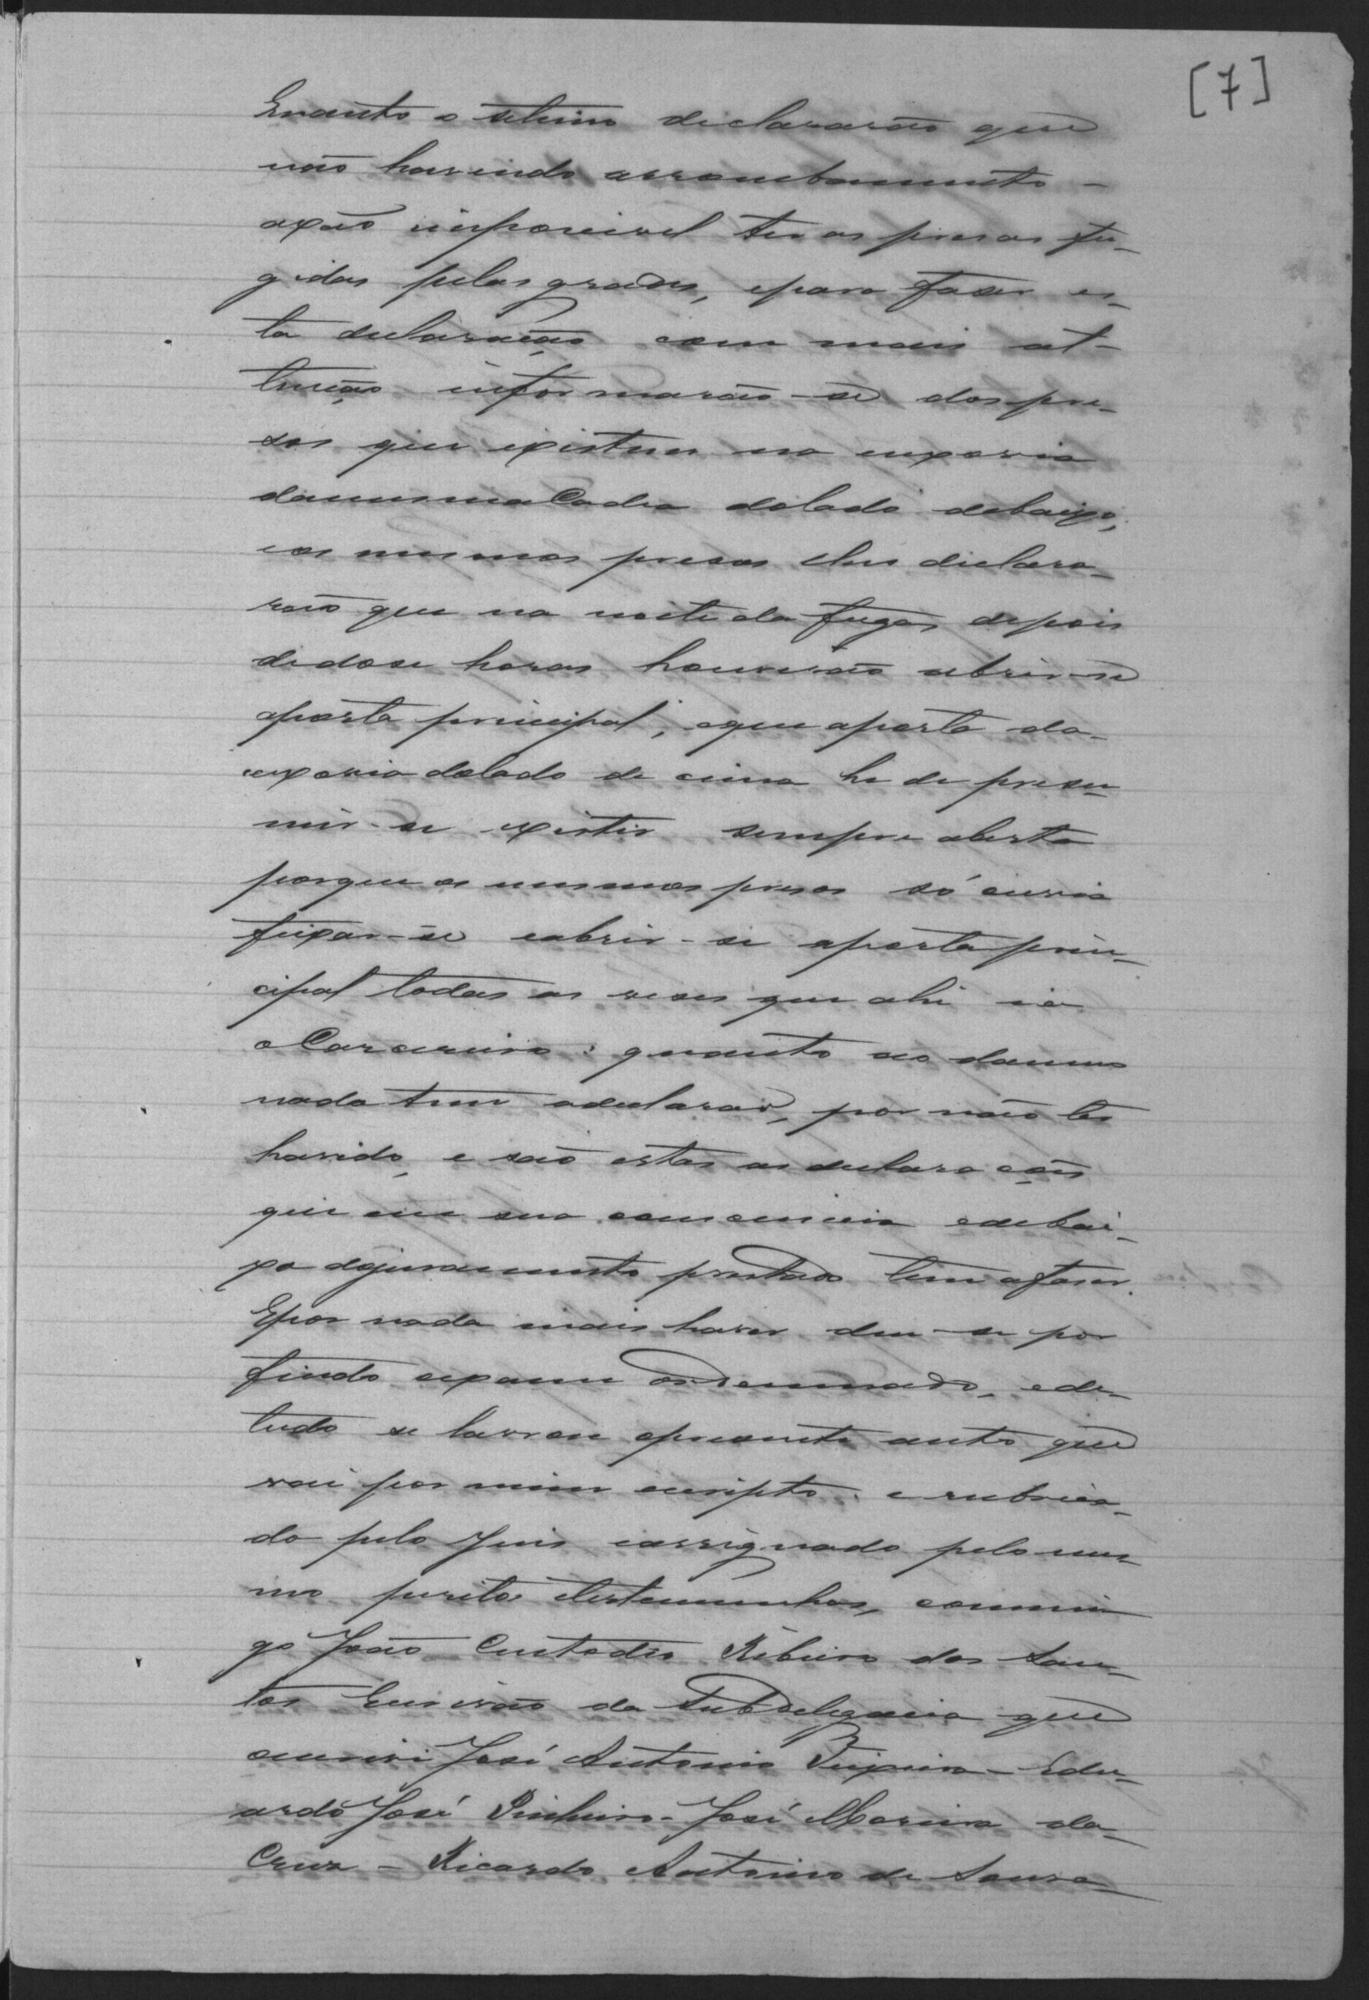 [7]
Enanto o ultimo declararão que
não havendo arrombamento -
axão impocivel ter os presos fu-
gidos pelas grades, epara faser es-
ta declaração com mais at-
tenção informarão-se dos pre-
sos que existem na enxovia
damesma Cadea dolado debaixo,
eos mesmos presos lhes declara-
rão que na noite da fuga, depois
dedose horas houverão abrir-se
aporta principal, eque aporta da
enxovia dolado de cima he de presu-
mir-se existir sempre aberta
porque os mesmos presos só ouvia
feixar-se eabrir-se aporta prin-
cipal todas as veses que ahi ia
o Carcereiro: quanto ao damno
nada tem adeclarar, por não ter
havido, e são estas as declarações
que em sua conciencia edebai-
xo dojuramento prestado tem afaser.
Epor nada mais haver deu-se por
findo oexame ordennado, ede
tudo se lavrou opresente auto que
vai por mim escripto, e rubrica-
do pelo Juis eassignado pelo mes-
mo peritos etestemunhas, commi
go João Custodio Ribeiro dos San-
tos Escrivão da Subdelegacia que
escrivi José Antonio Teixeira - Edu-
ardo José Pinheiro - José Moreira da
Cruz - Ricardo Antonio de Sousa